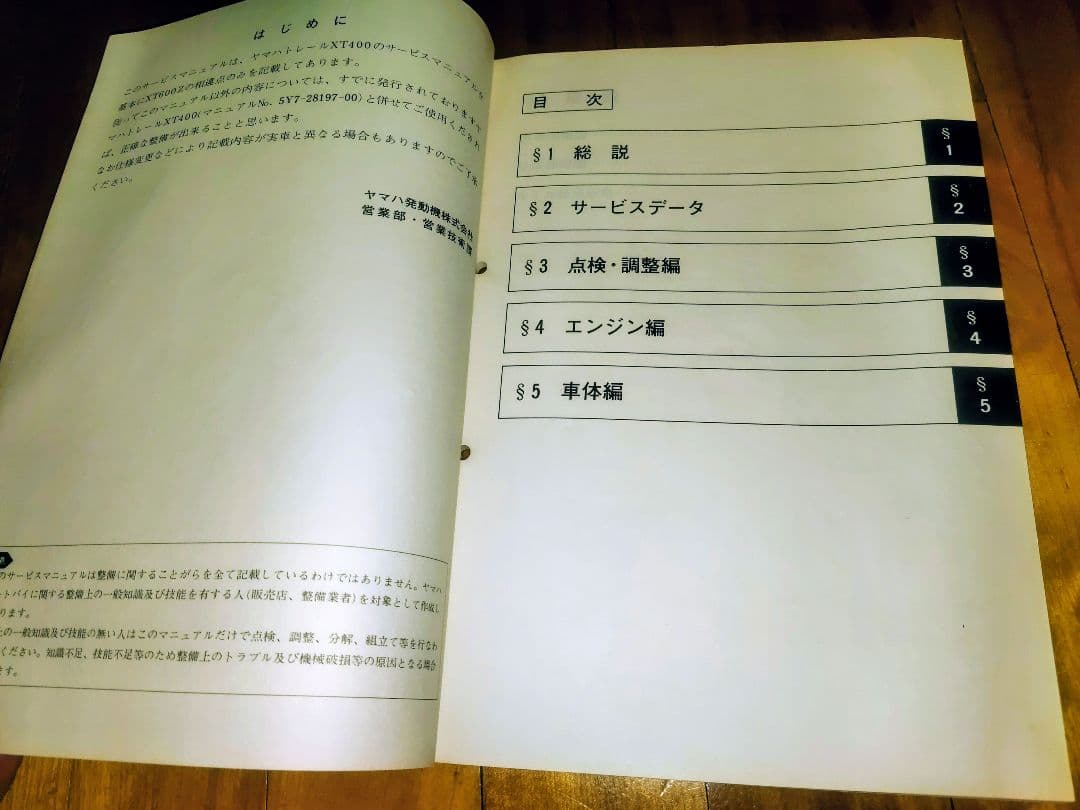 はじめに
このサービスマニュアルは、ヤマハトレールXT400のサービスマニュアルを
基本にXT600Zの相違点のみを記載してあります。
従ってこのマニュアル以外の内容については、すでに発行されておりますヤ
マハトレールXT400(マニュアルNo. 5Y7-28197-00)と併せてご使用くだされ
ば、正確な整備が出来ることと思います。
なお仕様変更などにより記載内容が実車と異なる場合もありますのでご了承
ください。
ヤマハ発動機株式会社
営業部・営業技術課
のサービスマニュアルは整備に関することがらを全て記載しているわけではありません。ヤマハ
ートバイに関する整備上の一般知識及び技能を有する人(販売店、整備業者)を対象として作成し
ります。
上の一般知識及び技能の無い人はこのマニュアルだけで点検、調整、分解、組立て等を行なわ
ください。知識不足、技能不足等のため整備上のトラブル及び機械破損等の原因となる場合
ます。
目 次
§1 総 説
§
1
§2 サービスデータ
§
2
§3 点検・調整編
§
3
§4 エンジン編
§
4
§5 車体編
§
5